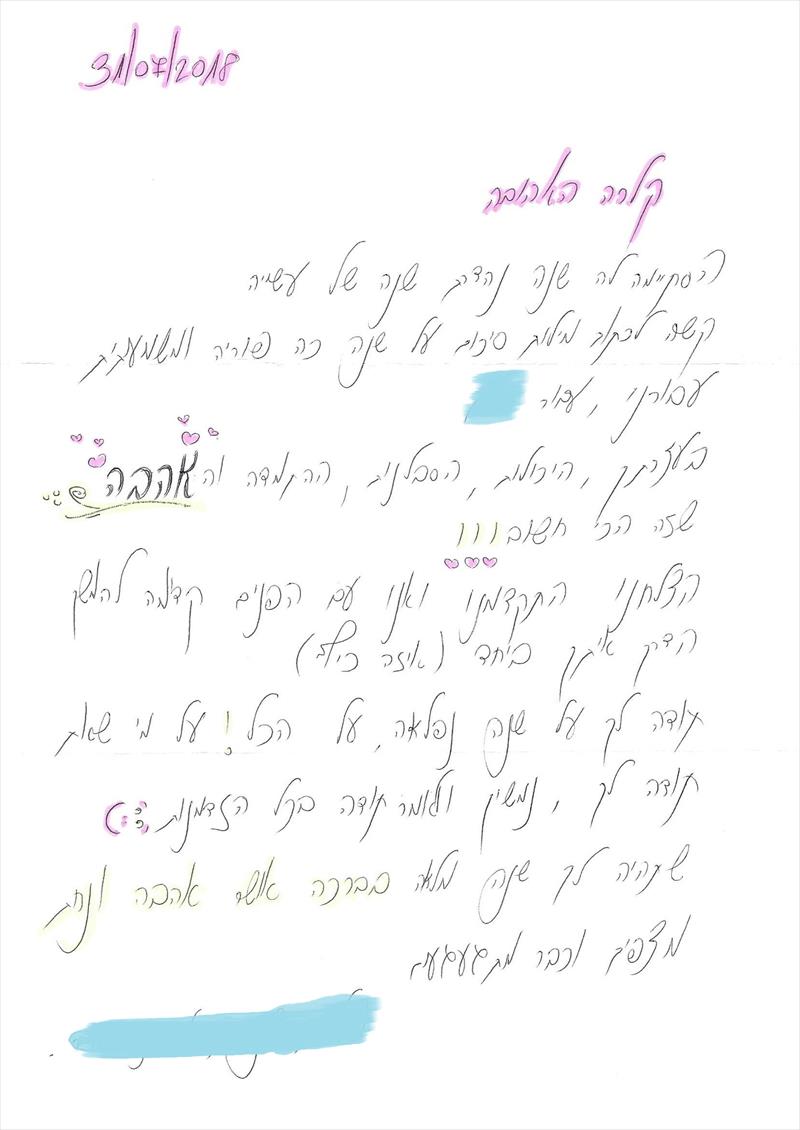 31/07/2018
קלרה האהובה
הסתיימה לה שנה נהדרת שנה של עשייה
קשה לכתוב מילות סיכום על שנה כה פוריה ומשמעותית
עבורנו, עבור
בעזרתך, היכולות, הסבלנות, ההתמדה והאהבה
שזה הכי חשוב !!!
הצלחנו התקדמנו ואנו עם הפנים קדימה להמשך
הדרך איתך ביחד (איזה כיף)
תודה לך על שנה נפלאה, על הכל! על מי שאת
תודה לך, נמשיך ולומר תודה בכל הזדמנות
שתהיה לך שנה מלאה בברכה אושר אהבה ונחת
מצפים וכבר מתגעגעים